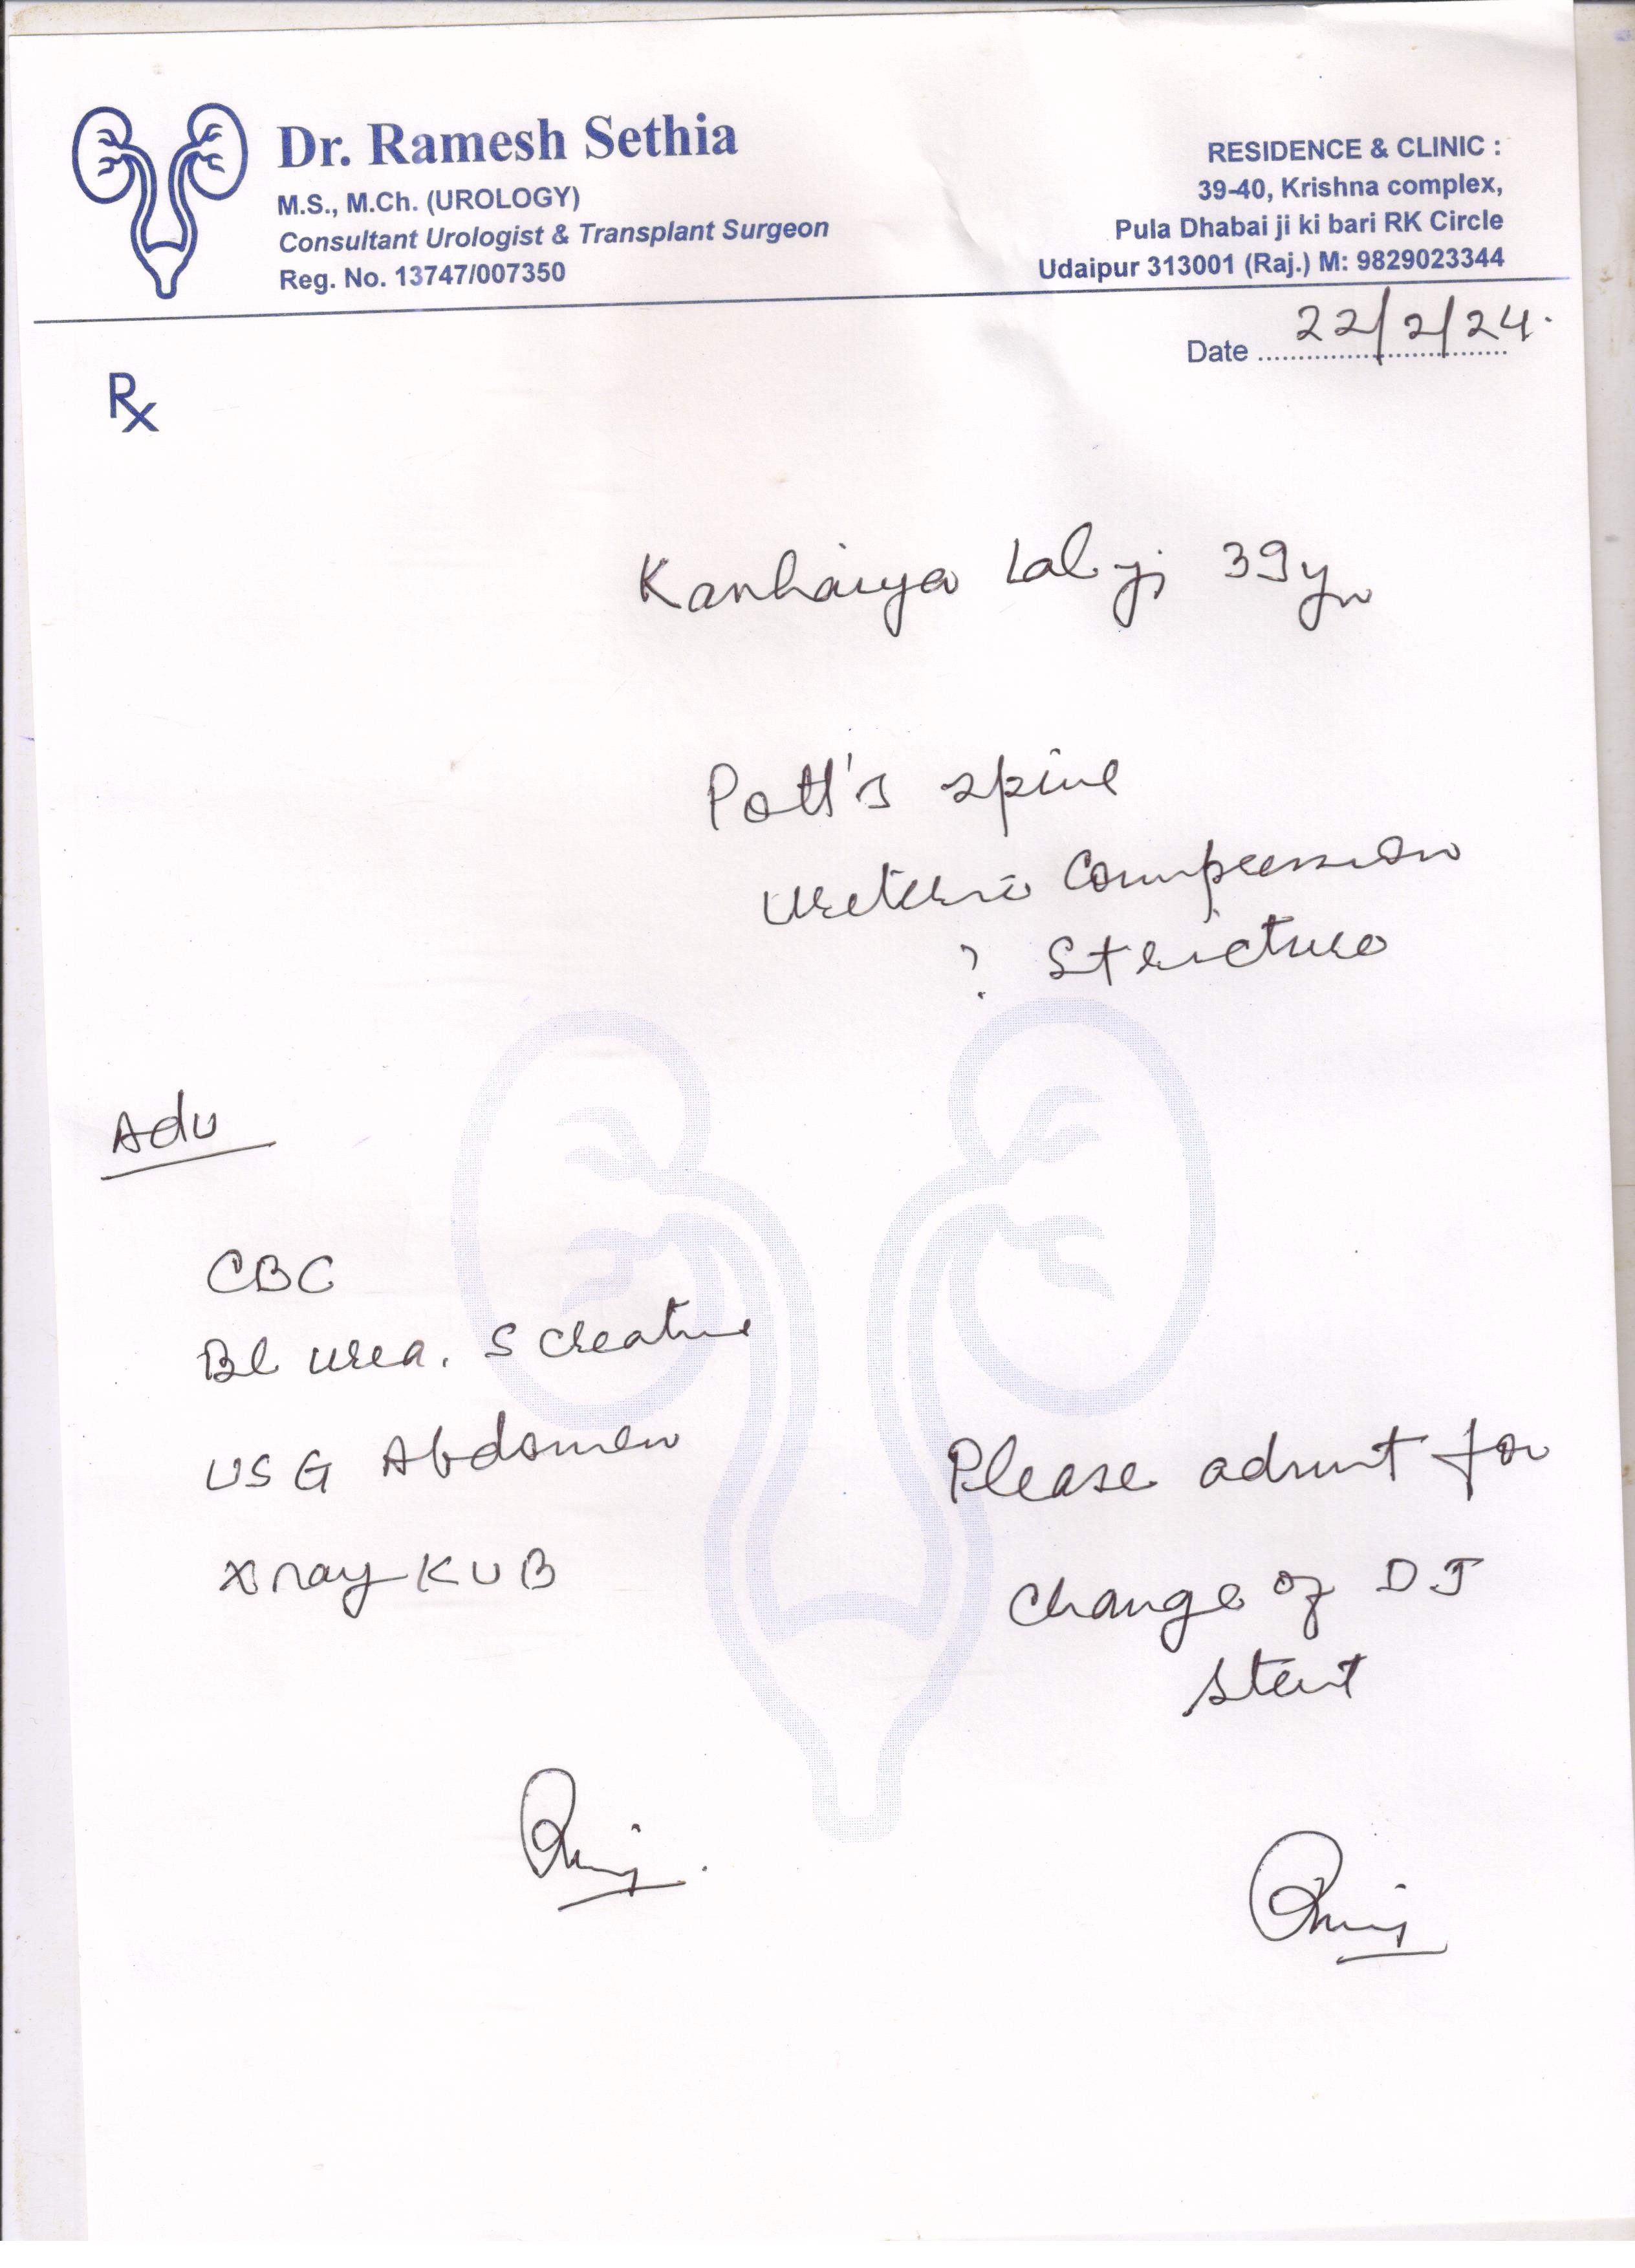 Dr. Ramesh Sethia
M.S., M.Ch. (UROLOGY)
Consultant Urologist & Transplant Surgeon
Reg. No. 13747/007350
RESIDENCE & CLINIC :
39-40, Krishna complex,
Pula Dhabai ji ki bari RK Circle
Udaipur 313001 (Raj.) M: 9829023344
Date 22/2/24.
Rx
Kanhaiya Lal ji 39yr
Pott's spine
Ureteric Compression
? Stricture
Adv
CBC
Bl urea. S Creatine
USG Abdomen
Xray KUB
Please admit for
Change of DJ
stent